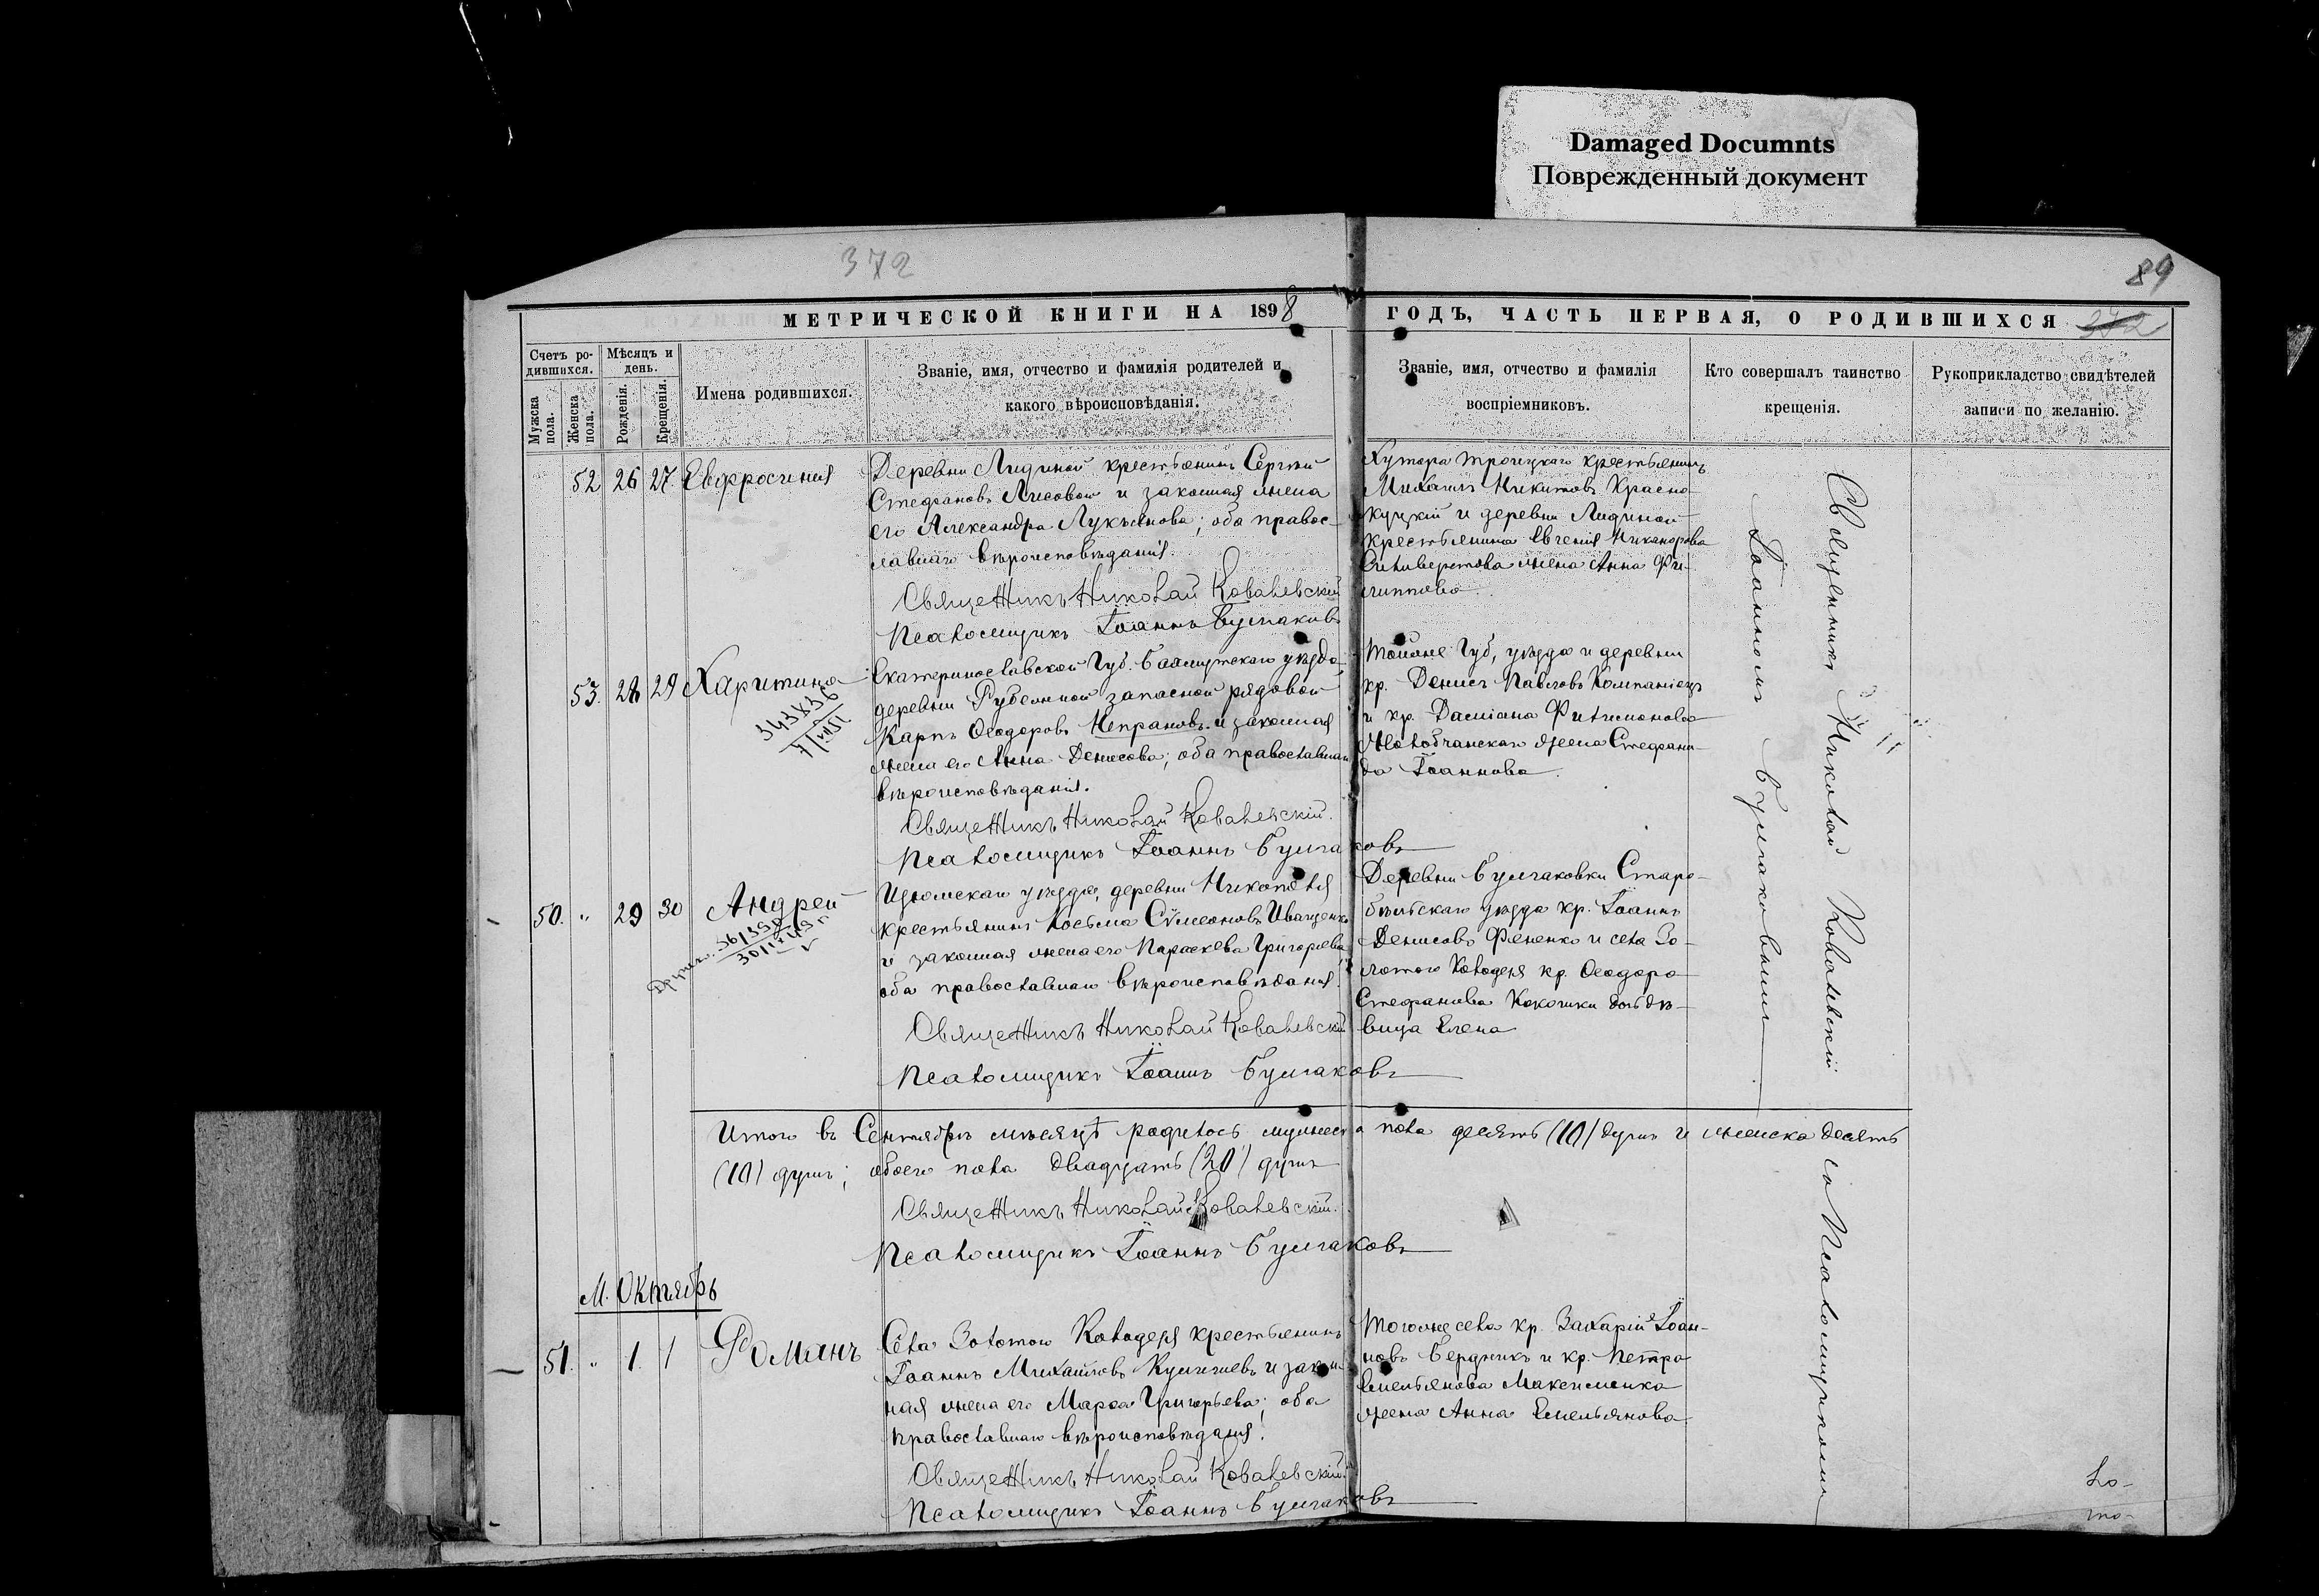 Damaged Documnts
Поврежденный документ
372
89
МЕТРИЧЕСКОЙ КНИГИ НА 1898
ГОДЪ, ЧАСТЬ ПЕРВАЯ, О РОДИВШИХСЯ 372
Счетъ ро-
дившихся.
Мѣсяцъ и
день.
Мужска
пола.
Женска
пола.
Рожденія.
Крещенія.
Имена родившихся.
Званіе, имя, отчество и фамилія родителей и
какого вѣроисповѣданія.
Званіе, имя, отчество и фамилія
воспріемниковъ.
Кто совершалъ таинство
крещенія.
Рукоприкладство свидѣтелей
записи по желанію.
52 26 27 Евфросинія
Деревни Лидиной крестьянинъ Сергѣй
Стефановъ Лисовой и законная жена
его Александра Лукьянова; оба правос-
лавнаго вѣроисповѣданія.
Священникъ Николай Ковалевскій
Псаломщикъ Іоаннъ Булгаковъ
Хутора Троицкаго крестьянинъ
Михаилъ Никитовъ Красно-
куцкій и деревни Лидиной
крестьянина Евгенія Никанорова
Селиверстова жена Анна Фи-
липпова.
53. 28 29 Харитина
Екатеринославской Губ. Бахмутскаго уѣзда,
деревни Рубежной запасной рядовой
Карпъ Ѳеодоровъ Непрановъ и законная
жена его Анна Денисова; оба православнаго
вѣроисповѣданія.
Священникъ Николай Ковалевскій.
Псаломщикъ Іоаннъ Булгаковъ
Тойже Губ, уѣзда и деревни
кр. Денисъ Павловъ Компаніецъ
и кр. Даміана Филимонова
жена Стефани-
да Іоаннова.
50. " 29 30 Андрей
Изюмскаго уѣзда, деревни Никополя
крестьянинъ Косьма Сѵмеоновъ Иващенко
и законная жена его Параскева Григорьева;
оба православнаго вѣроисповѣданія.
Священникъ Николай Ковалевскій
Псаломщикъ Іоаннъ Булгаковъ
Деревни Булгаковки Старо-
бѣльскаго уѣзда кр. Іоаннъ
Денисовъ Фененко и села Зо-
лотого Колодезя кр. Ѳеодора
Стефанова Кокошки дочь дѣ-
вица Елена
Священникъ Николай Ковалевскій
съ Псаломщикомъ
Іоанномъ Булгаковымъ
Итого въ Сентябрѣ мѣсяцѣ родилось мужеска пола десять (10) душъ и женска десять
(10) душъ; обоего пола двадцать (20) душъ
Священникъ Николай Ковалевскій.
Псаломщикъ Іоаннъ Булгаковъ
М. Октябрь
51. " 1. 1 Романъ
Села Золотого Колодезя крестьянинъ
Іоаннъ Михайловъ и закон-
ная жена его Марѳа Григорьева; оба
православнаго вѣроисповѣданія.
Священникъ Николай Ковалевскій.
Псаломщикъ Іоаннъ Булгаковъ
Тогоже села кр. Захарій Іоан-
новъ Бердникъ и кр. Петра
Емельянова Максименка
жена Анна Емельянова